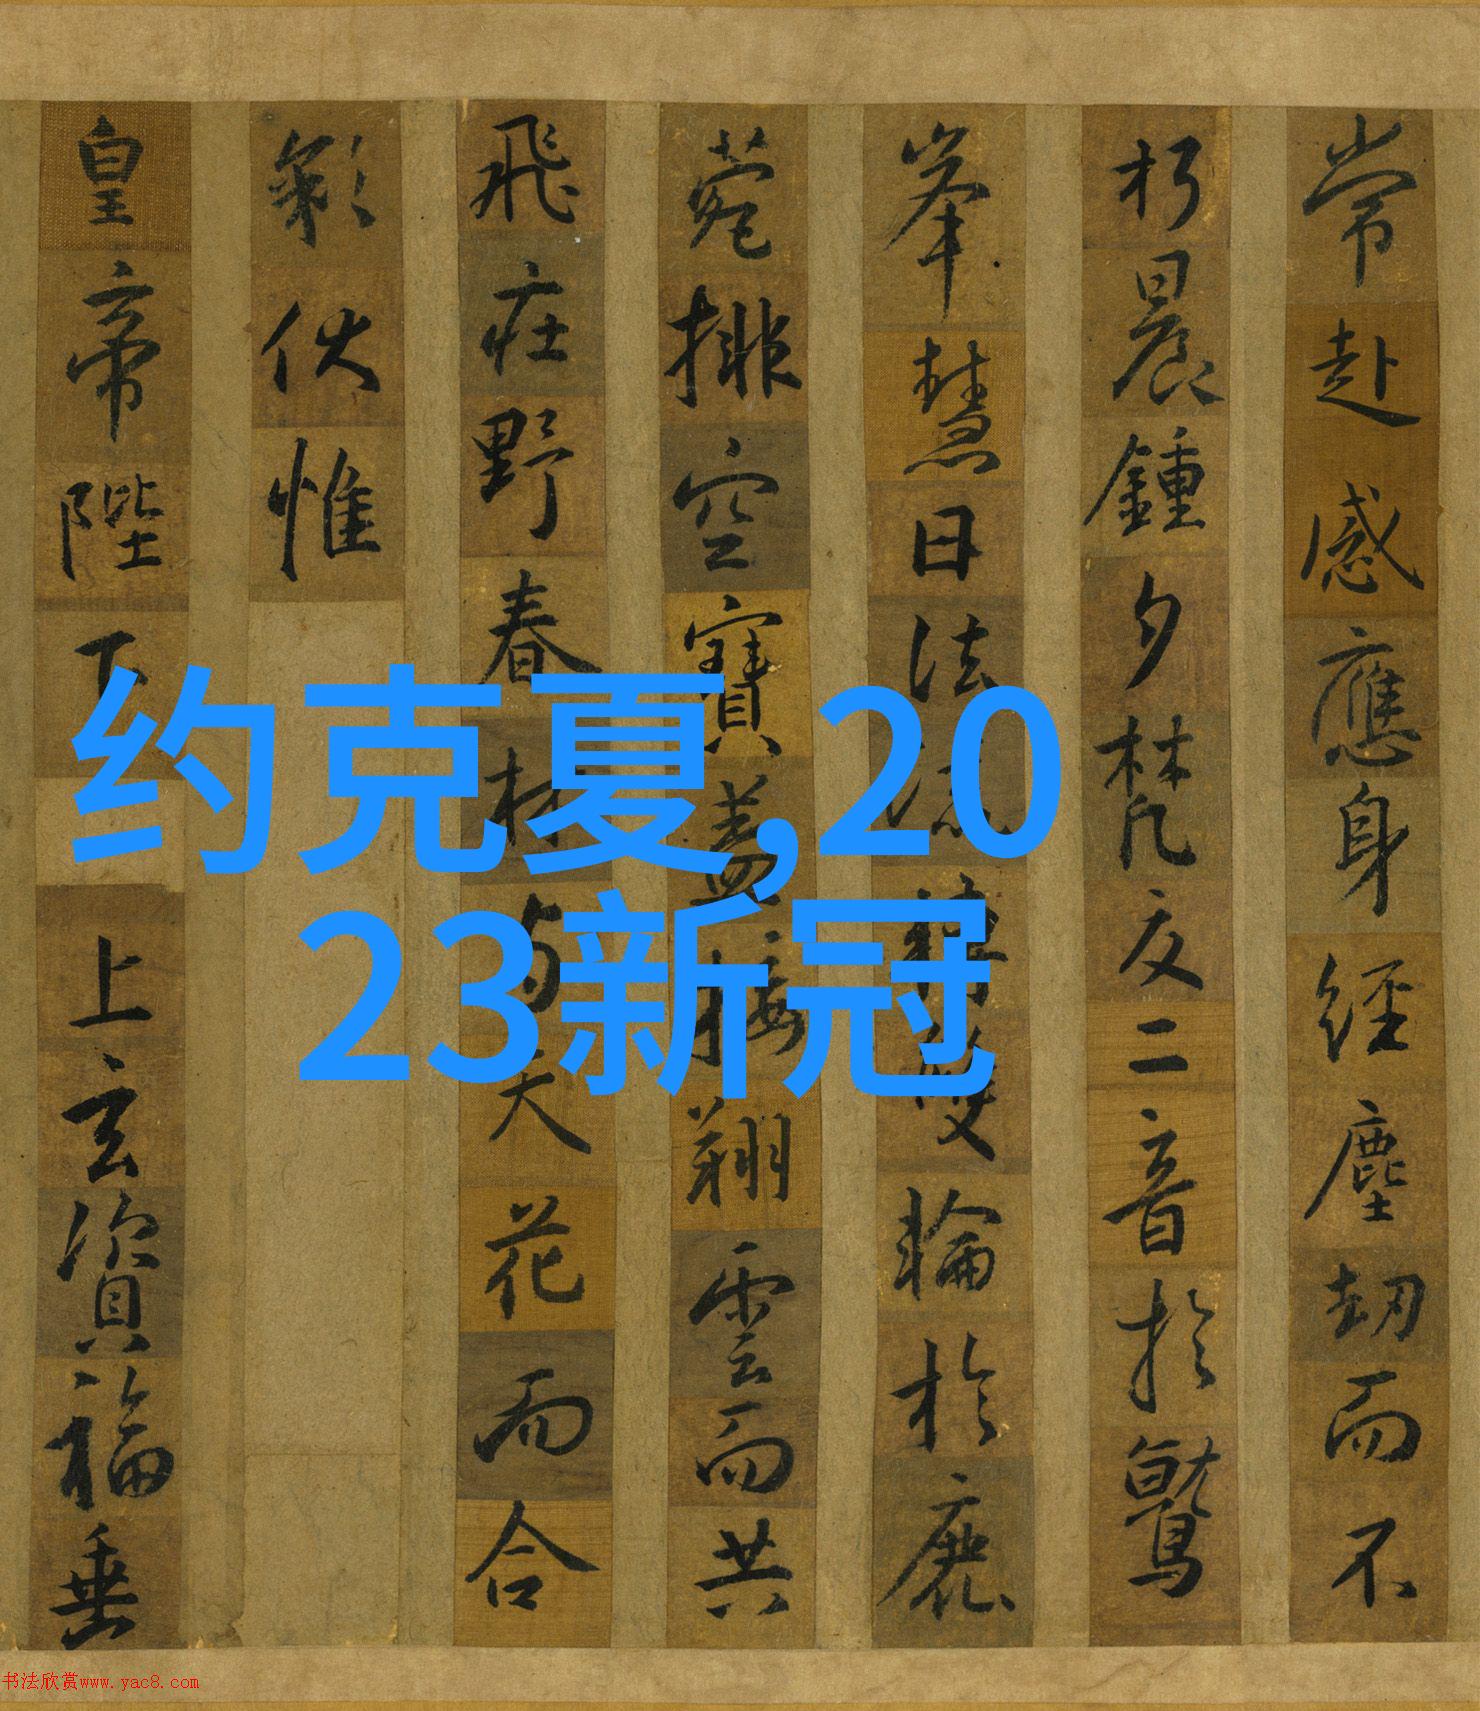 常赴感應身經塵劫而不
朽晨鍾夕梵交二音於鷲
峯慧日法流轉雙輪於鹿
菀排空寶蓋接翔雲而共
飛莊野春林与天花而合
彩伏惟
皇帝陛下上玄資福垂
约克夏,20
23新冠
书法欣赏www.yac8.com